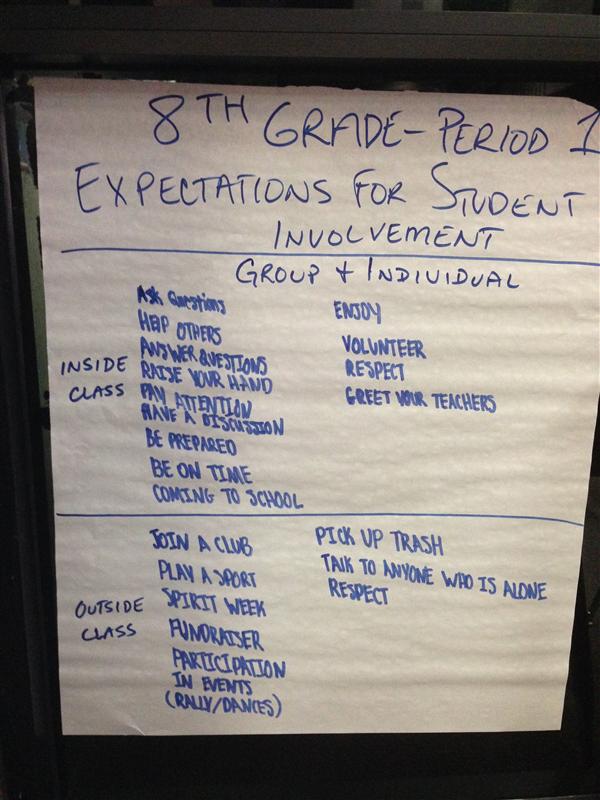 8TH GRADE - PERIOD 1
EXPECTATIONS FOR STUDENT
INVOLVEMENT
GROUP + INDIVIDUAL
INSIDE
CLASS
ASK QUESTIONS
HELP OTHERS
ANSWER QUESTIONS
RAISE YOUR HAND
PAY ATTENTION
HAVE A DISCUSSION
BE PREPARED
BE ON TIME
COMING TO SCHOOL
ENJOY
VOLUNTEER
RESPECT
GREET YOUR TEACHERS
OUTSIDE
CLASS
JOIN A CLUB
PLAY A SPORT
SPIRIT WEEK
FUNDRAISER
PARTICIPATION
IN EVENTS
(RALLY/DANCES)
PICK UP TRASH
TALK TO ANYONE WHO IS ALONE
RESPECT